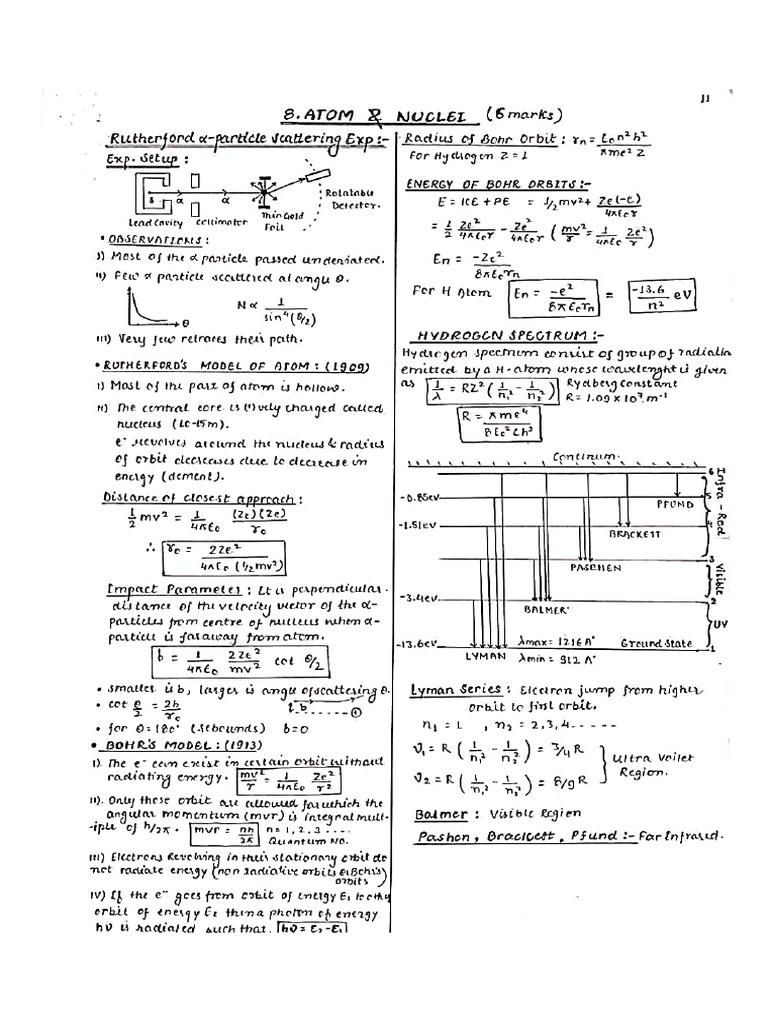 11
8. ATOM & NUCLEI (6 marks)
Rutherford α-particle scattering Exp:-
Exp. Setup :
S α α
Rotatable
Detector.
Lead Cavity Collimator Thin Gold
Foil
• OBSERVATIONS :
i) Most of the α particle passed undeviated.
ii) Few α particle scattered at angle θ.
N ∝ 1 / sin⁴(θ/2)
θ
iii) Very few retraces their path.
• RUTHERFORD'S MODEL OF ATOM : (1909)
i) Most of the part of atom is hollow.
ii) The central core is (+)vely charged called
nucleus (10-15m).
e⁻ revolves around the nucleus & radius
of orbit decreases due to decrease in
energy (dement).
Distance of closest approach :
1/2 mv² = 1/4πε₀ (Ze)(2e)/r₀
∴ r₀ = 2Ze²/4πε₀(1/2mv²)
Impact Parameter : It is perpendicular
distance of the velocity vector of the α-
particles from centre of nucleus when α-
particle is far away from atom.
b = 1/4πε₀ 2Ze²/mv² cot θ/2
• smaller is b, larger is angle of scattering θ.
• cot θ/2 = 2b/r₀
b
• for θ=180° (rebounds) b=0
• BOHR'S MODEL : (1913)
i). The e⁻ can exist in certain orbit without
radiating energy. mv²/r = 1/4πε₀ Ze²/r²
ii). Only those orbit are allowed for which the
angular momentum (mvr) is integral mult-
-iple of h/2π. mvr = nh/2π n = 1, 2, 3 ....
Quantum NO.
iii) Electrons Revolving in their stationary orbit do
not radiate energy (non Radiative orbits Bohr's
orbits)
iv) If the e⁻ goes from orbit of energy E₁ to
orbit of energy E₂ then a photon of energy
hν is radiated such that. hν = E₂-E₁
Radius of Bohr Orbit : rn = ε₀n²h²/πme²Z
For Hydrogen Z = 1
ENERGY OF BOHR ORBITS :-
E = KE + PE = 1/2mv² + Ze(-e)/4πε₀r
= 1/2 Ze²/4πε₀r - Ze²/4πε₀r (mv²/r = 1/4πε₀ Ze²/r)
En = -Ze²/8πε₀rn
For H Atom En = -e²/8πε₀rn = -13.6/n² eV
HYDROGEN SPECTRUM :-
Hydrogen spectrum consist of group of radiatia
emitted by a H-atom whose wavelenght is given
as 1/λ = RZ²(1/n₁² - 1/n₂²) Rydberg Constant
R = 1.09 × 10⁷ m⁻¹
R = πme⁴/8ε₀²ch³
Continum.
6
-0.85ev 5
PFUND
-1.51ev 4
BRACKETT
Infra-Red
3
PASCHEN
Visible
-3.4ev 2
BALMER
UV
-13.6ev λmax = 1216 A° Ground State 1
LYMAN λmin = 912 A°
Lyman Series : Electron jump from higher
orbit to first orbit.
n₁ = 1 , n₂ = 2, 3, 4 - - - - -
ν₁ = R(1/n₁² - 1/n₂²) = 3/4 R
Ultra Voilet
Region.
ν₂ = R(1/n₁² - 1/n₂²) = 8/9 R
Balmer : Visible Region
Pashen, Brackett, Pfund :- Far Infrared.